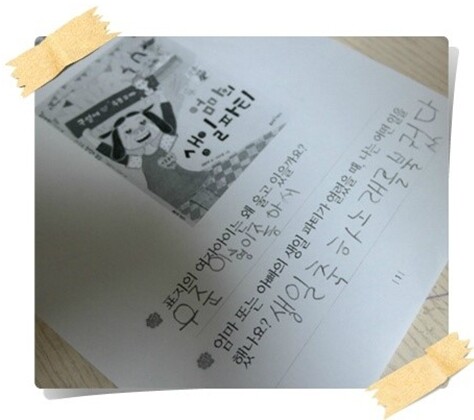 엄마의
생일파티
표지의 여자아이는 왜 울고 있을까요?
엄마 또는 아빠의 생일 파티가 열렸을 때, 나는 어떤 일을
했나요? 생일축하노래를불렀다